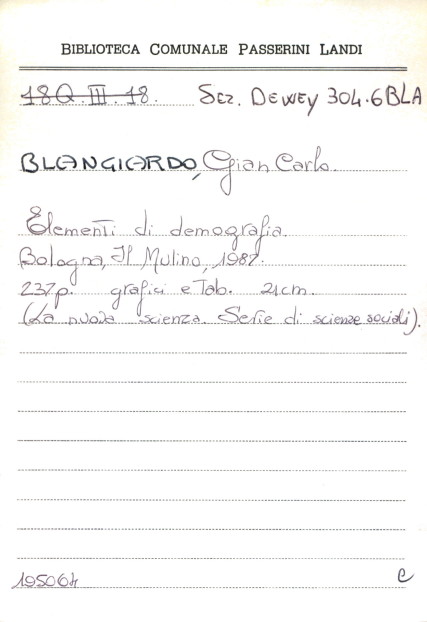 BIBLIOTECA COMUNALE PASSERINI LANDI
18Q.III.18. SEZ. DEWEY 304.6BLA
BLANGIARDO, Gian Carlo
Elementi di demografia.
Bologna, Il Mulino, 1987.
237p. grafici e Tab. 21cm.
(La nuova scienza. Serie di scienze sociali).
195064 e